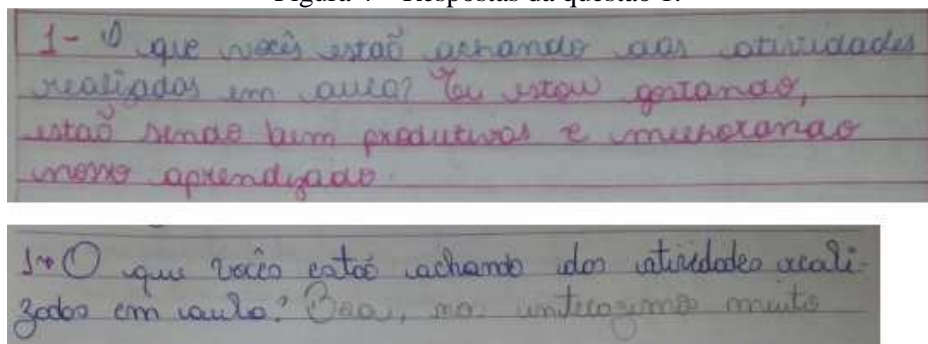 Figura 4 – Respostas da questão 1.
1- O que vocês estaõ achando das atividades
realizadas em aula? Eu estou gostando,
estaõ sendo bem produtivas e melhorando
nosso aprendizado.
1- O que vocês estaõ achando das atividades reali-
zadas em aula? Boa, nos muito